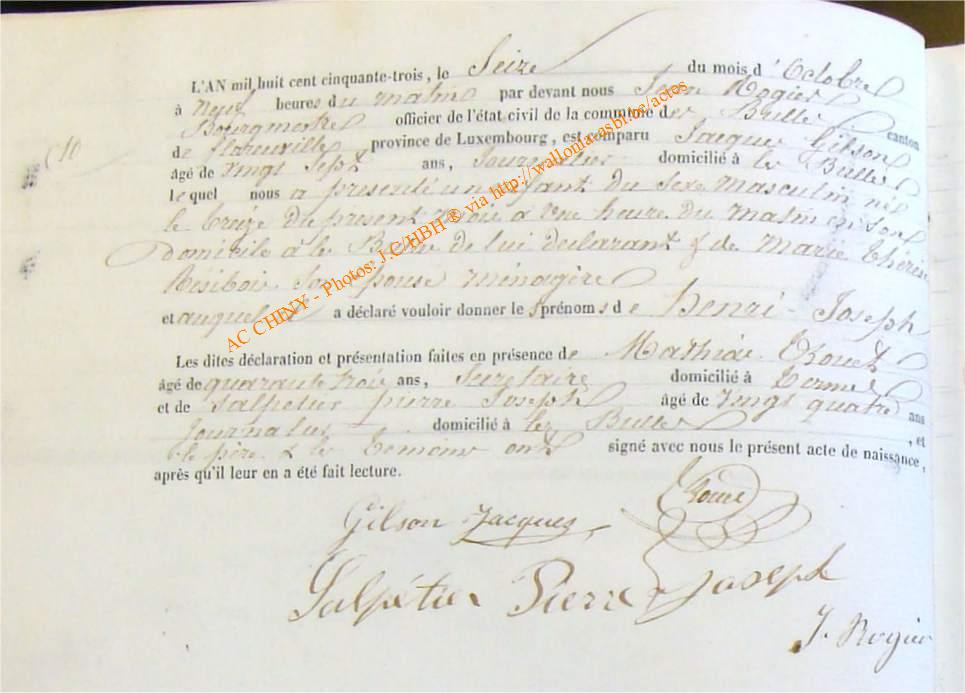 L'AN mil huit cent cinquante-trois, le Seize du mois d'Octobre
à neuf heures du matin par devant nous Jean Rogier
Bourgmestre officier de l'état civil de la commune des Bulles canton
de florenville province de Luxembourg, est comparu Jacques Gilson
âgé de vingt sept ans, journalier domicilié à les Bulles
lequel nous a présenté un enfant du sexe masculin né
le treize du présent mois à une heure du matin en son
Domicile à les Bulles de lui déclarant & de marie thérèse
son épouse ménagère
et auquel il a déclaré vouloir donner les prénoms de henri Joseph
Les dites déclaration et présentation faites en présence de Mathieu
âgé de quarante trois ans, Secrétaire domicilié à termes
et de Salpetier pierre Joseph âgé de vingt quatre ans
Journalier domicilié à les Bulles, et
le père & les témoins ont signé avec nous le présent acte de naissance,
après qu'il leur en a été fait lecture.
Gilson Jacques
Salpétier Pierre Joseph
J. Rogier
AC CHINY - Photos: J.C HBH ® via http://wallonia-asbl.be/actes